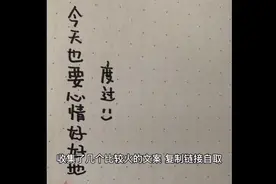 今天也要心情好好地
度过:)
收集了几个比较火的文案 复制链接自取